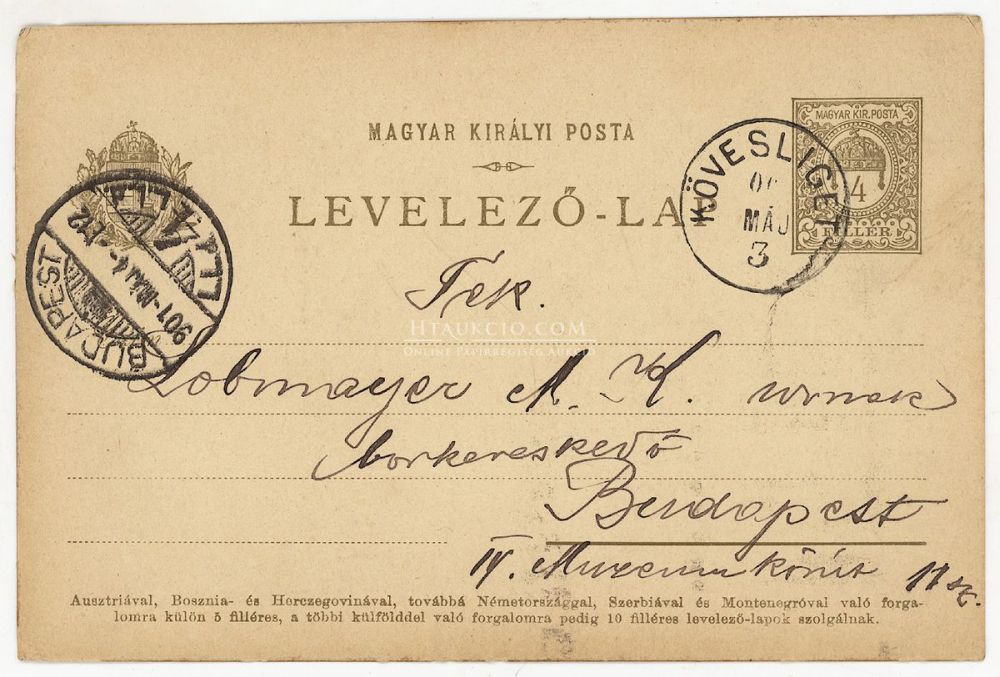 MAGYAR KIRÁLYI POSTA
MAGYAR KIR. POSTA
4
FILLÉR
KÖVESLIGET
MÁJ
3
LEVELEZŐ-LAP
BUDAPEST
901-MÁJ 4
Tek.
HTAUKCIO.COM
ONLINE PAPÍRRÉGISÉG AUKCIÓ
Lobmayer M. K. urnak
borkereskedő
Budapest
IV. Muzeum körut 11 sz.
Ausztriával, Bosznia- és Herczegovinával, továbbá Németországgal, Szerbiával és Montenegróval való forga-
lomra külön 5 filléres, a többi külfölddel való forgalomra pedig 10 filléres levelező-lapok szolgálnak.